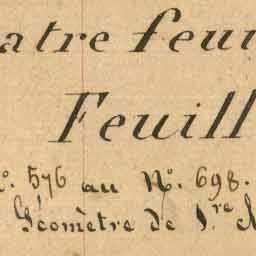 atre feui
Feuill
º. 576 au Nº. 698.
Géomètre de 1.re